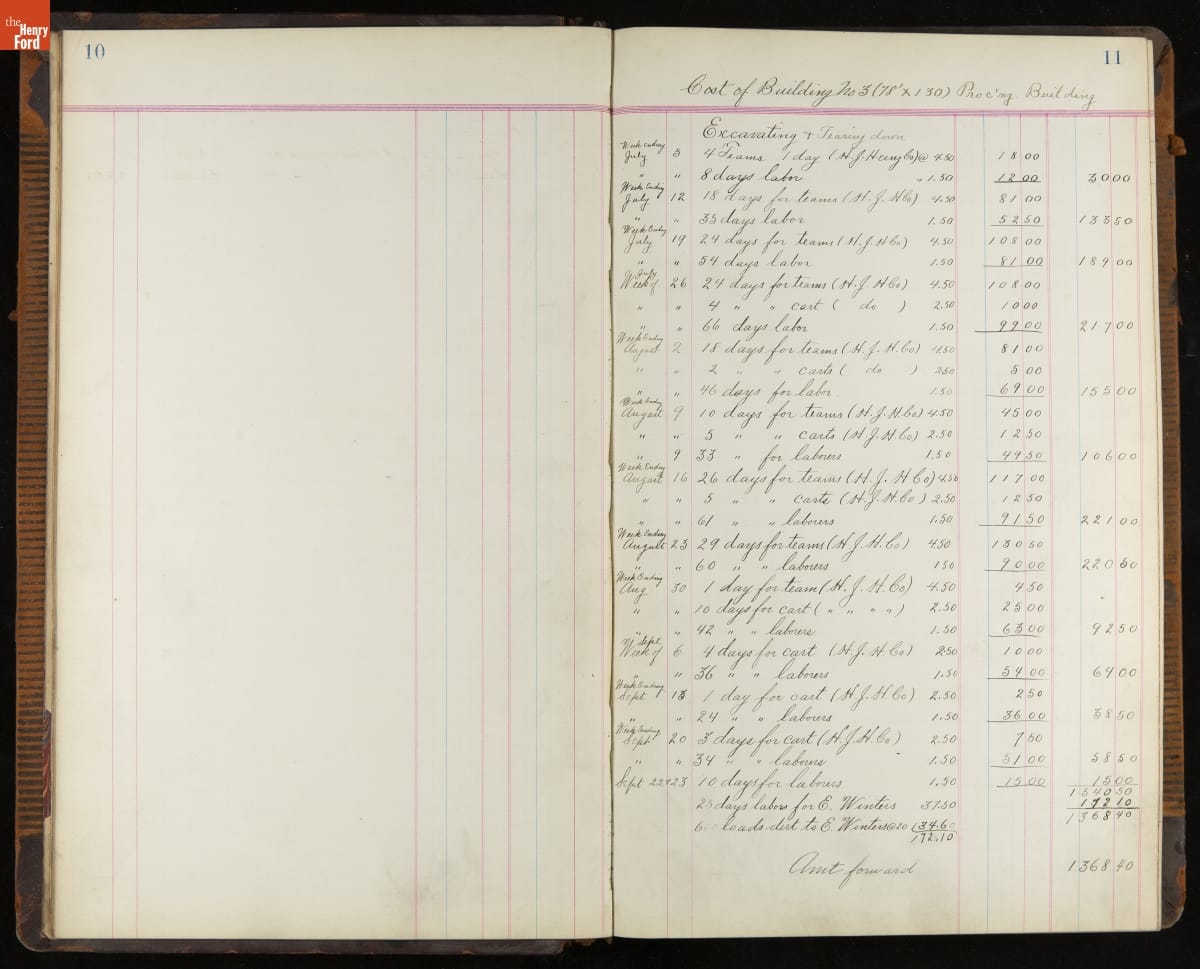 the Henry Ford
10
11
Cost of Building No 3 (78' x 130) Proc'ng. Building
Excavating & Tearing down
Week Ending July 5 4 Teams 1 day (H. J. Heinz Co) @ 4.50 18 00
" " 8 days labor " 1.50 12 00 30 00
Week Ending July 12 18 days for teams (H. J. H Co) 4.50 81 00
" " 35 days labor 1.50 52 50 133 50
Week Ending July 19 24 days for teams (H. J. H Co) 4.50 108 00
" " 54 days labor 1.50 81 00 189 00
Week of July 26 24 days for teams (H. J. H Co) 4.50 108 00
" " 4 " " cart ( do ) 2.50 10 00
" " 66 days labor 1.50 99 00 217 00
Week Ending August 2 18 days for teams (H. J. H. Co) 4.50 81 00
" " 2 " " carts ( do ) 2.50 5 00
" " 46 days for labor 1.50 69 00 155 00
Week Ending August 9 10 days for teams (H. J. H. Co) 4.50 45 00
" " 5 " " carts (H. J. H. Co) 2.50 12 50
" 9 33 " for laborers 1.50 49 50 106 00
Week Ending August 16 26 days for teams (H. J. H Co) 4.50 117 00
" " 5 " " carts (H. J. H. Co) 2.50 12 50
" " 61 " " laborers 1.50 91 50 221 00
Week Ending August 23 29 days for teams (H. J. H. Co) 4.50 130 50
" " 60 " " laborers 1 50 90 00 220 50
Week Ending Aug 30 1 day for team (H. J. H. Co) 4.50 4 50
" " 10 days for cart ( " " " " ) 2.50 25 00
" " 42 " " laborers 1.50 63 00 92 50
Week of Sept 6 4 days for cart (H. J. H. Co) 2.50 10 00
" " 36 " " laborers 1.50 54 00 64 00
Week Ending Sept 13 1 day for cart (H. J. H Co) 2.50 2 50
" " 24 " " laborers 1.50 36 00 38 50
Week Ending Sept 20 3 days for cart (H. J. H. Co) 2.50 7 50
" " 34 " " laborers 1.50 51 00 58 50
Sept 22 & 23 10 days for laborers 1.50 15 00 15 00
1540 50
25 days labor for E. Winters 37.50 172 10
1368 40
loads dirt to E. Winters @ 20 134.60
172.10
Amt forward 1368 40